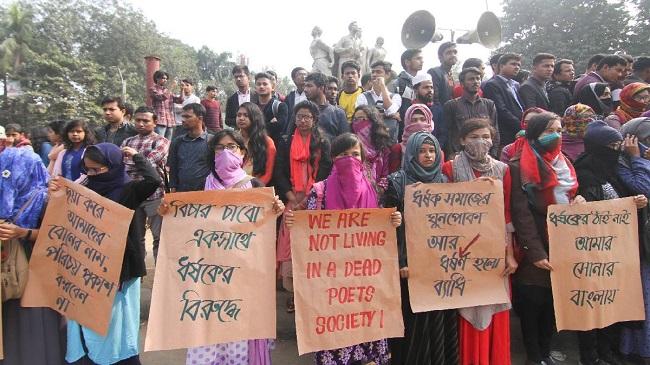 দয়া করে
আমাদের
বোনের নাম,
পরিচয় প্রকাশ
করবেন
না
বিচার চাবো
একসাথে
ধর্ষকের
বিরুদ্ধে
WE ARE
NOT LIVING
IN A DEAD
POETS
SOCIETY!
ধর্ষক সমাজের
ঘুনপোকা
আর
ধর্ষণ হলো
ব্যাধি
ধর্ষকের ঠাঁই নাই,
আমার
সোনার
বাংলায়